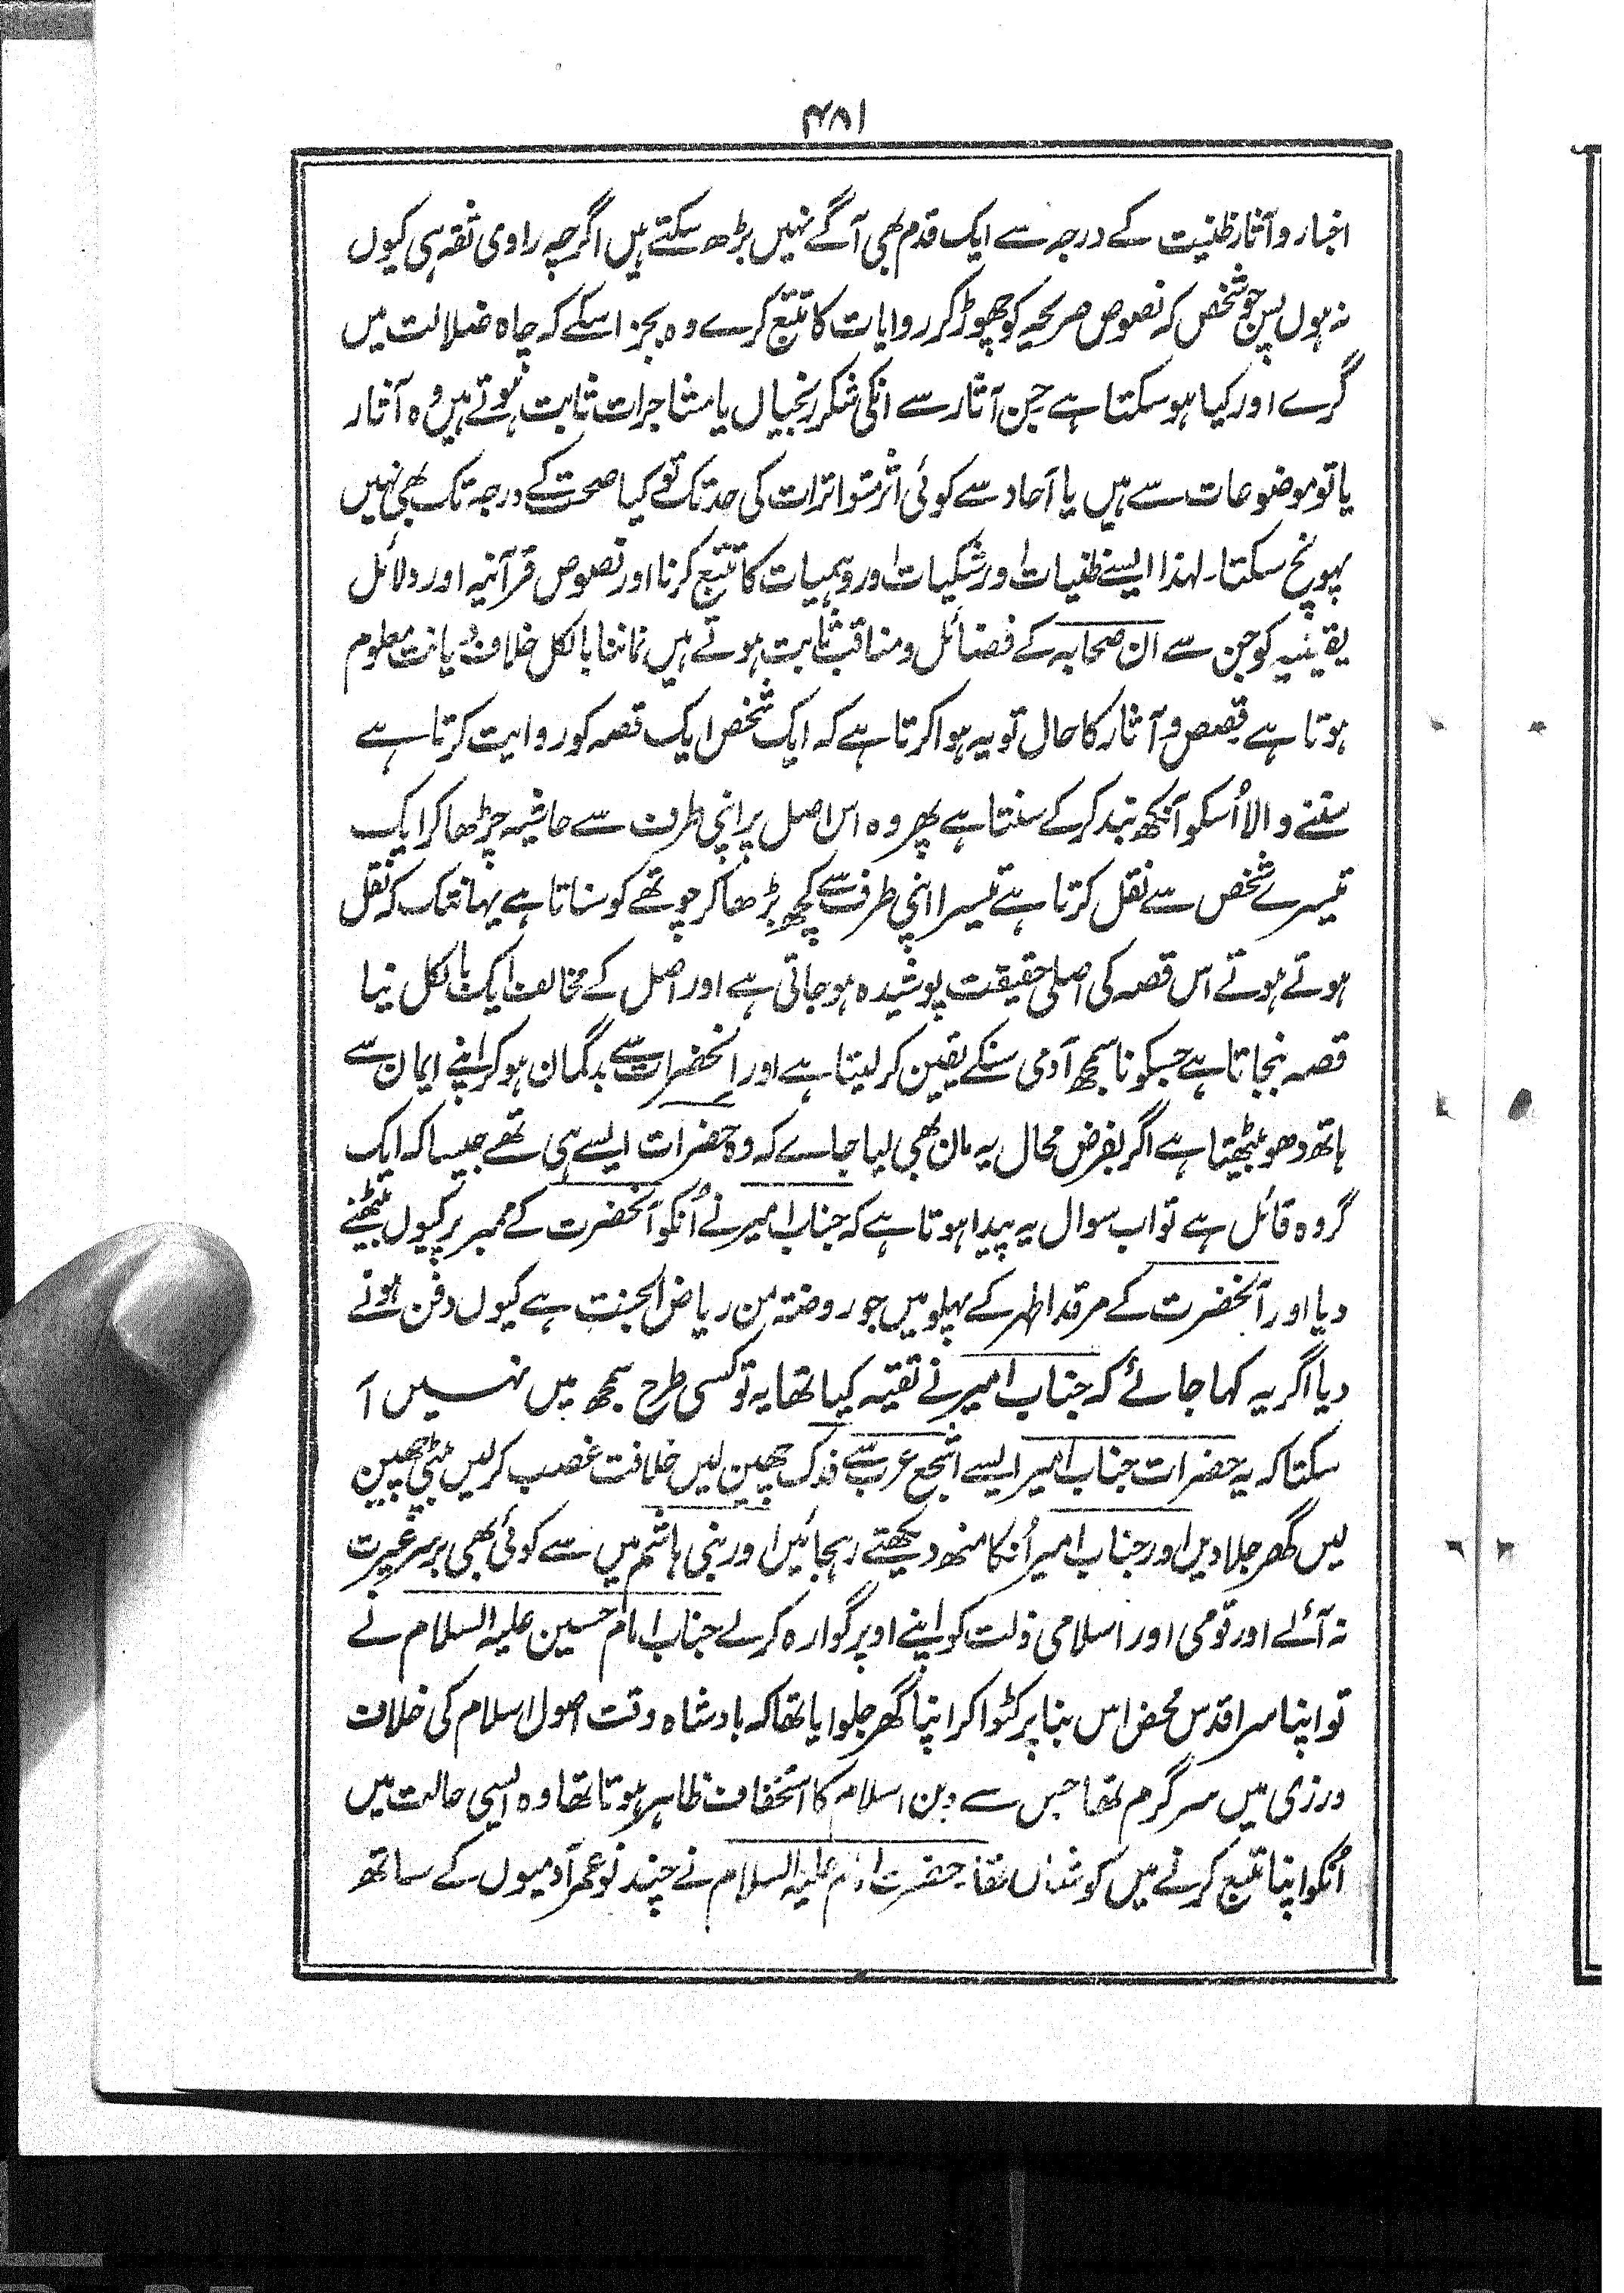 ۴۸۱
اخبار و آثار ظنیت کے درجہ سے ایک قدم بھی آگے نہیں بڑھ سکتے ہیں اگرچہ راوی ثقہ ہی کیوں
نہ ہوں پس جو شخص کہ نصوص صریحہ کو چھوڑ کر روایات کا تتبع کرے وہ بجز اسکے کہ چاہ ضلالت میں
گرے اور کیا ہو سکتا ہے جن آثار سے انکی شکر رنجیاں یا مشاجرات ثابت ہوتے ہیں وہ آثار
یا تو موضوعات سے ہیں یا آحاد سے کوئی اثر متواترات کی حد تک تو کیا صحت کے درجہ تک بھی نہیں
پہونچ سکتا۔ لہذا ایسے ظنیات اور شکیات اور وہمیات کا تتبع کرنا اور نصوص قرآنیہ اور دلائل
یقینیہ کو جن سے ان صحابہ کے فضائل و مناقب ثابت ہوتے ہیں نماننا بالکل خلاف دیانت معلوم
ہوتا ہے قصص و آثار کا حال تو یہ ہوا کرتا ہے کہ ایک شخص ایک قصہ کو روایت کرتا ہے
سننے والا اُسکو آنکھ بند کر کے سنتا ہے پھر وہ اس اصل پر اپنی طرف سے حاشیہ چڑھا کر ایک
تیسرے شخص سے نقل کرتا ہے تیسرا اپنی طرف سے کچھ بڑھا کر چوتھے کو سناتا ہے یہانتک کہ نقل
ہوتے ہوتے اس قصہ کی اصلی حقیقت پوشیدہ ہو جاتی ہے اور اصل کے مخالف ایک بالکل نیا
قصہ بنجاتا ہے جسکو ناسمجھ آدمی سنکے یقین کر لیتا ہے اور انحضرات سے بدگمان ہو کر اپنے ایمان سے
ہاتھ دھو بیٹھتا ہے اگر بفرض محال یہ مان بھی لیا جاے کہ وہ حضرات ایسے ہی تھے جیسا کہ ایک
گروہ قائل ہے تو اب سوال یہ پیدا ہوتا ہے کہ جناب امیر نے اُنکو آنحضرت کے ممبر پر کیوں بیٹھنے
دیا اور آنحضرت کے مرقد اطہر کے پہلو میں جو روضتہ من ریاض الجنت ہے کیوں دفن ہونے
دیا اگر یہ کہا جائے کہ جناب امیر نے تقیہ کیا تھا یہ تو کسی طرح سمجھ میں نہیں آ
سکتا کہ یہ حضرات جناب امیر ایسے اشجع عرب سے فدک چھین لیں خلافت غصب کر لیں بیٹی چھین
لیں گھر جلا دیں اور جناب امیر اُنکا منھ دیکھتے رہجائیں اور بنی ہاشم میں سے کوئی بھی بر سر غیرت
نہ آئے اور قومی اور اسلامی ذلت کو اپنے اوپر گوارہ کر لے جناب امام حسین علیہ السلام نے
تو اپنا سر اقدس محض اس بنا پر کٹوا کر اپنا گھر جلوایا تھا کہ بادشاہ وقت اصول اسلام کی خلاف
ورزی میں سرگرم تھا جس سے دین اسلام کا استخفاف ظاہر ہوتا تھا وہ ایسی حالت میں
اُنکو اپنا تتبع کرنے میں کوشاں تھا۔ حضرت امام علیہ السلام نے چند نو عمر آدمیوں کے ساتھ